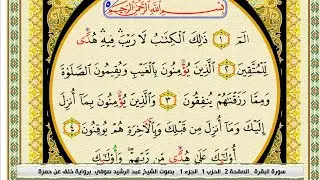 بِسْمِ اللَّهِ الرَّحْمَٰنِ الرَّحِيمِ
الٓمٓ ١ ذَٰلِكَ الْكِتَٰبُ لَا رَيْبَ فِيهِ هُدًى
لِلْمُتَّقِينَ ٢ الَّذِينَ يُؤْمِنُونَ بِالْغَيْبِ وَيُقِيمُونَ الصَّلَوٰةَ
وَمِمَّا رَزَقْنَٰهُمْ يُنفِقُونَ ٣ وَالَّذِينَ يُؤْمِنُونَ بِمَا أُنزِلَ
إِلَيْكَ وَمَا أُنزِلَ مِن قَبْلِكَ وَبِالْآخِرَةِ هُمْ يُوقِنُونَ ٤
أُولَٰئِكَ عَلَىٰ هُدًى مِّن رَّبِّهِمْ وَأُولَٰئِكَ
سورة البقرة الصفحة 2 الحزب 1 الجزء 1 بصوت الشيخ عبد الرشيد صوفي برواية خلف عن حمزة